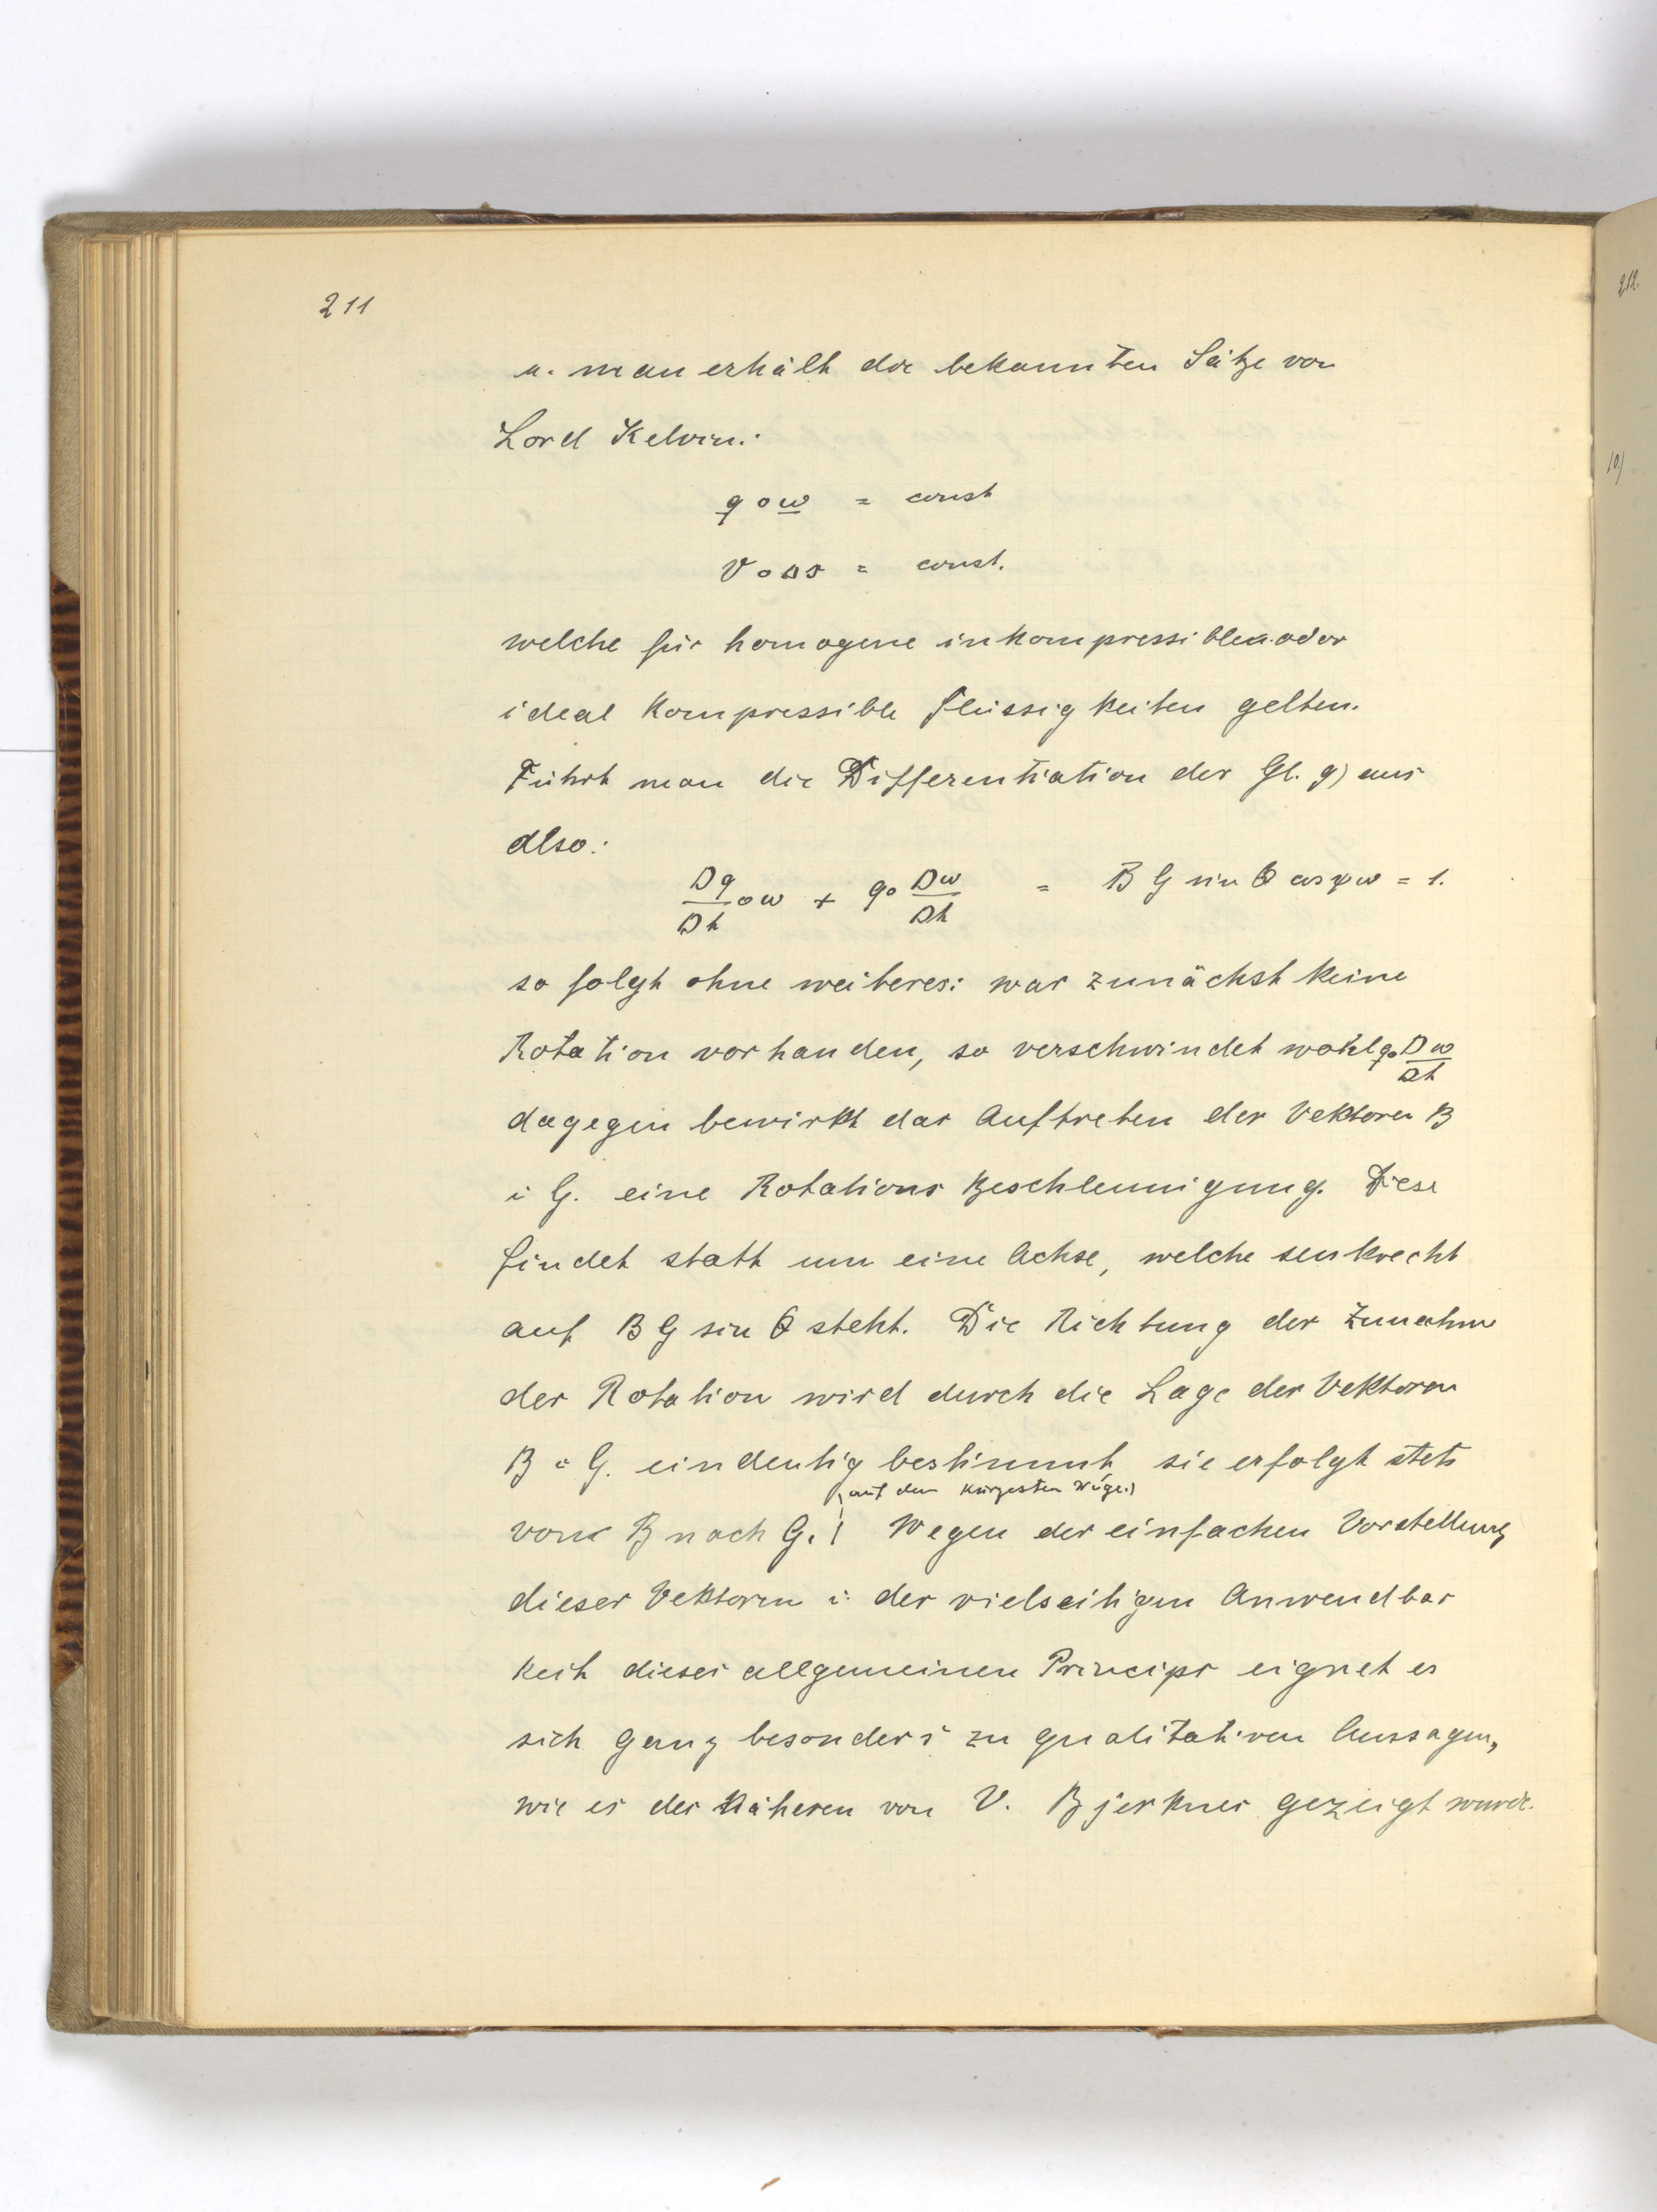 211
u. man erhält die bekannten Sätze von
Lord Kelvin:
q o ω = const
v o Δs = const.
welche für homogene inkompressiblen oder
ideal kompressible Flüssigkeiten gelten.
Führt man die Differentiation der Gl. 9) aus
also:
Dq/Dt o ω + q o Dω/Dt = B G sin θ cos ψ ω = 1.
so folgt ohne weiteres: war zunächst keine
Rotation vorhanden, so verschwindet wohl q o Dω/Dt
dagegen bewirkt das Auftreten der Vektoren B
i G. eine Rotations Beschleunigung. Diese
findet statt um eine Achse, welche senkrecht
auf B G sin θ steht. Die Richtung der Zunahme
der Rotation wird durch die Lage der Vektoren
B i G. eindeutig bestimmt, sie erfolgt stets
(auf dem kürzesten Wege.)
von B nach G. Wegen der einfachen Vorstellung
dieser Vektoren i der vielseitigen Anwendbar
keit dieses allgemeinen Princips eignet es
sich ganz besonders zu qualitativen Aussagen,
wie es des Näheren von V. Bjerknes gezeigt wurde.
212.
10)